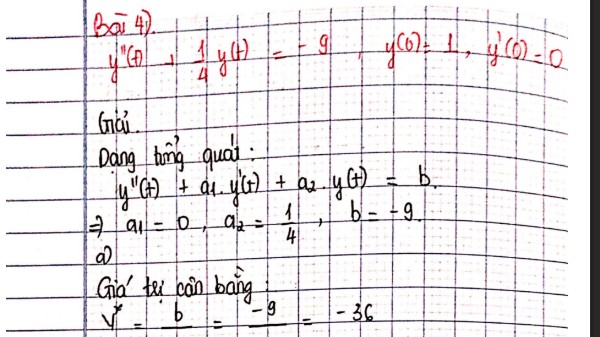 Bài 4).
y''(t) + 1/4 y(t) = -9 , y(0) = 1 , y'(0) = 0
Giải.
Dạng tổng quát :
y''(t) + a1. y'(t) + a2. y(t) = b.
⇒ a1 = 0 , a2 = 1/4 , b = -9.
a)
Giá trị cân bằng :
y* = b = -9 = -36